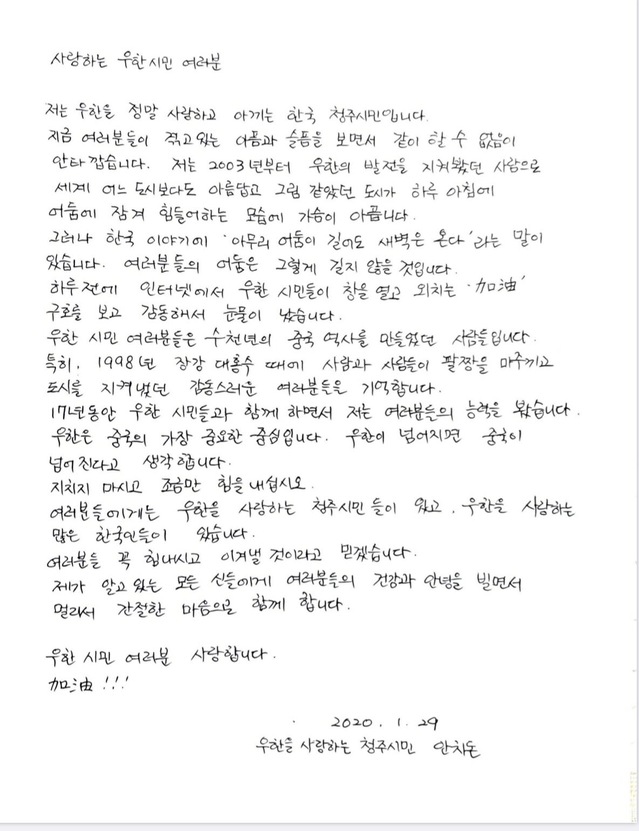 사랑하는 우한시민 여러분
저는 우한을 정말 사랑하고 아끼는 한국 청주시민입니다.
지금 여러분들이 겪고있는 아픔과 슬픔을 보면서 같이 할 수 없음이
안타깝습니다. 저는 2003년부터 우한의 발전을 지켜봤던 사람으로
세계 어느 도시보다도 아름답고 그림 같았던 도시가 하루 아침에
어둠에 잠겨 힘들어하는 모습에 가슴이 아픕니다.
그러나 한국 이야기에 '아무리 어둠이 길어도 새벽은 온다'라는 말이
있습니다. 여러분들의 어둠은 그렇게 길지 않을 것입니다.
하루전에 인터넷에서 우한 시민들이 창을 열고 외치는 '加油'
구호를 보고 감동해서 눈물이 났습니다.
우한 시민 여러분들은 수천년의 중국 역사를 만들었던 사람들입니다.
특히, 1998년 장강 대홍수 때에 사람과 사람들이 팔짱을 마주끼고
도시를 지켜냈던 감동스러운 여러분들을 기억합니다.
17년동안 우한 시민들과 함께 하면서 저는 여러분들의 능력을 봤습니다.
우한은 중국의 가장 중요한 중심입니다. 우한이 넘어지면 중국이
넘어진다고 생각합니다.
지치지 마시고 조금만 힘을 내십시오.
여러분들에게는 우한을 사랑하는 청주시민들이 있고, 우한을 사랑하는
많은 한국인들이 있습니다.
여러분들 꼭 힘내시고 이겨낼 것이라고 믿겠습니다.
제가 알고 있는 모든 신들에게 여러분들의 건강과 안녕을 빌면서
멀리서 간절한 마음으로 함께 합니다.
우한 시민 여러분 사랑합니다.
加油!!!
2020. 1. 29
우한을 사랑하는 청주시민 안치돈